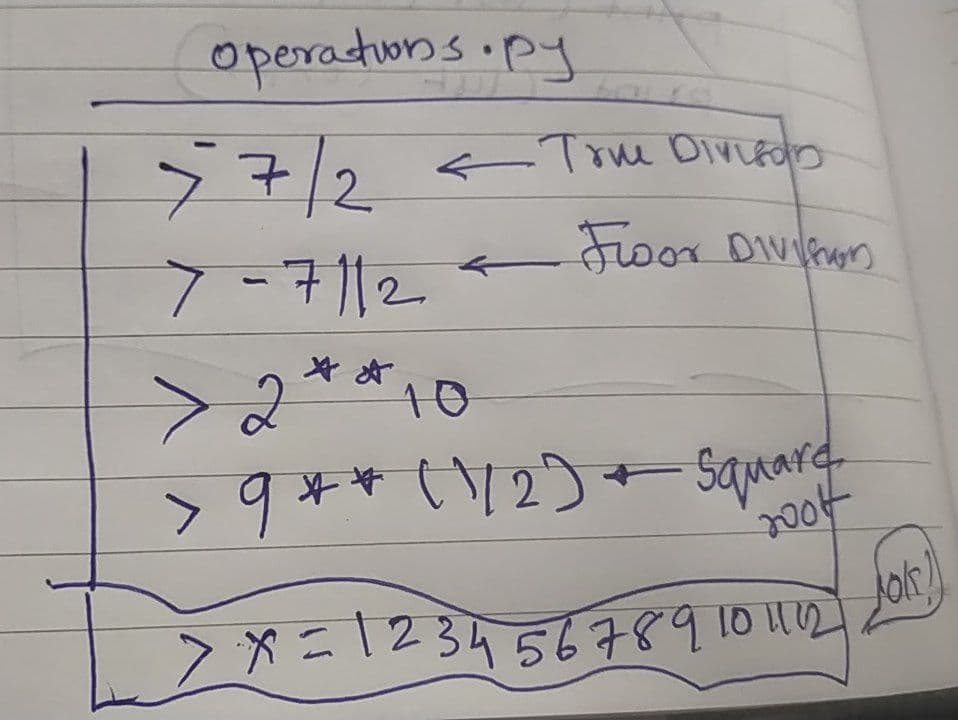 operations.py
> -7/2 ← True Division
> -7//2 ← Floor Division
> 2**10
> 9**(1/2) ← Square root
> x = 123456789101112
ok!